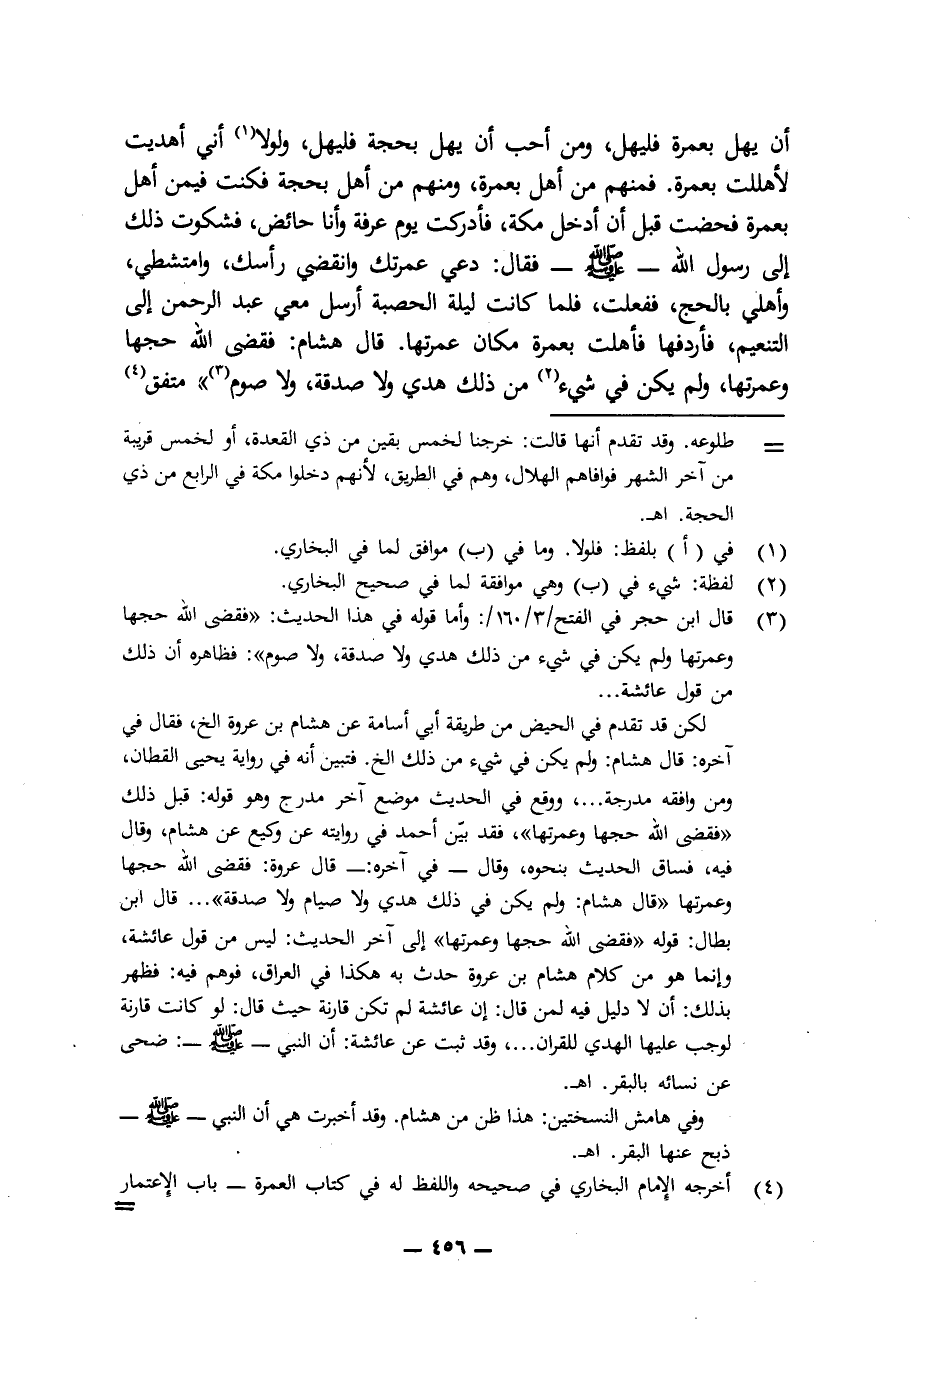 أن يهل بعمرة فليهل، ومن أحب أن يهل بحجة فليهل، ولولا(١) أني أهديت
لأهللت بعمرة. فمنهم من أهل بعمرة، ومنهم من أهل بحجة فكنت فيمن أهل
بعمرة فحضت قبل أن أدخل مكة، فأدركت يوم عرفة وأنا حائض، فشكوت ذلك
إلى رسول الله — ﷺ — فقال: دعي عمرتك وانقضي رأسك، وامتشطي،
وأهلي بالحج، ففعلت، فلما كانت ليلة الحصبة أرسل معي عبد الرحمن إلى
التنعيم، فأردفها فأهلت بعمرة مكان عمرتها. قال هشام: فقضى الله حجها
وعمرتها، ولم يكن في شيء(٢) من ذلك هدي ولا صدقة، ولا صوم(٣)» متفق(٤)
= طلوعه. وقد تقدم أنها قالت: خرجنا لخمس بقين من ذي القعدة، أو لخمس قريبة
من آخر الشهر فوافاهم الهلال، وهم في الطريق، لأنهم دخلوا مكة في الرابع من ذي
الحجة. اهـ.
(١) في ( أ ) بلفظ: فلولا. وما في (ب) موافق لما في البخاري.
(٢) لفظة: شيء في (ب) وهي موافقة لما في صحيح البخاري.
(٣) قال ابن حجر في الفتح/٣/١٦٠/: وأما قوله في هذا الحديث: «فقضى الله حجها
وعمرتها ولم يكن في شيء من ذلك هدي ولا صدقة، ولا صوم»: فظاهره أن ذلك
من قول عائشة...
لكن قد تقدم في الحيض من طريقة أبي أسامة عن هشام بن عروة الخ، فقال في
آخره: قال هشام: ولم يكن في شيء من ذلك الخ. فتبين أنه في رواية يحيى القطان،
ومن وافقه مدرجة...، ووقع في الحديث موضع آخر مدرج وهو قوله: قبل ذلك
«فقضى الله حجها وعمرتها»، فقد بيّن أحمد في روايته عن وكيع عن هشام، وقال
فيه، فساق الحديث بنحوه، وقال — في آخره:— قال عروة: فقضى الله حجها
وعمرتها «قال هشام: ولم يكن في ذلك هدي ولا صيام ولا صدقة»... قال ابن
بطال: قوله «فقضى الله حجها وعمرتها» إلى آخر الحديث: ليس من قول عائشة،
وإنما هو من كلام هشام بن عروة حدث به هكذا في العراق، فوهم فيه: فظهر
بذلك: أن لا دليل فيه لمن قال: إن عائشة لم تكن قارنة حيث قال: لو كانت قارنة
لوجب عليها الهدي للقران...، وقد ثبت عن عائشة: أن النبي — ﷺ —: ضحى
عن نسائه بالبقر. اهـ.
وفي هامش النسختين: هذا ظن من هشام. وقد أخبرت هي أن النبي — ﷺ —
ذبح عنها البقر. اهـ.
(٤) أخرجه الإمام البخاري في صحيحه واللفظ له في كتاب العمرة — باب الإعتمار
=
— ٤٥٦ —